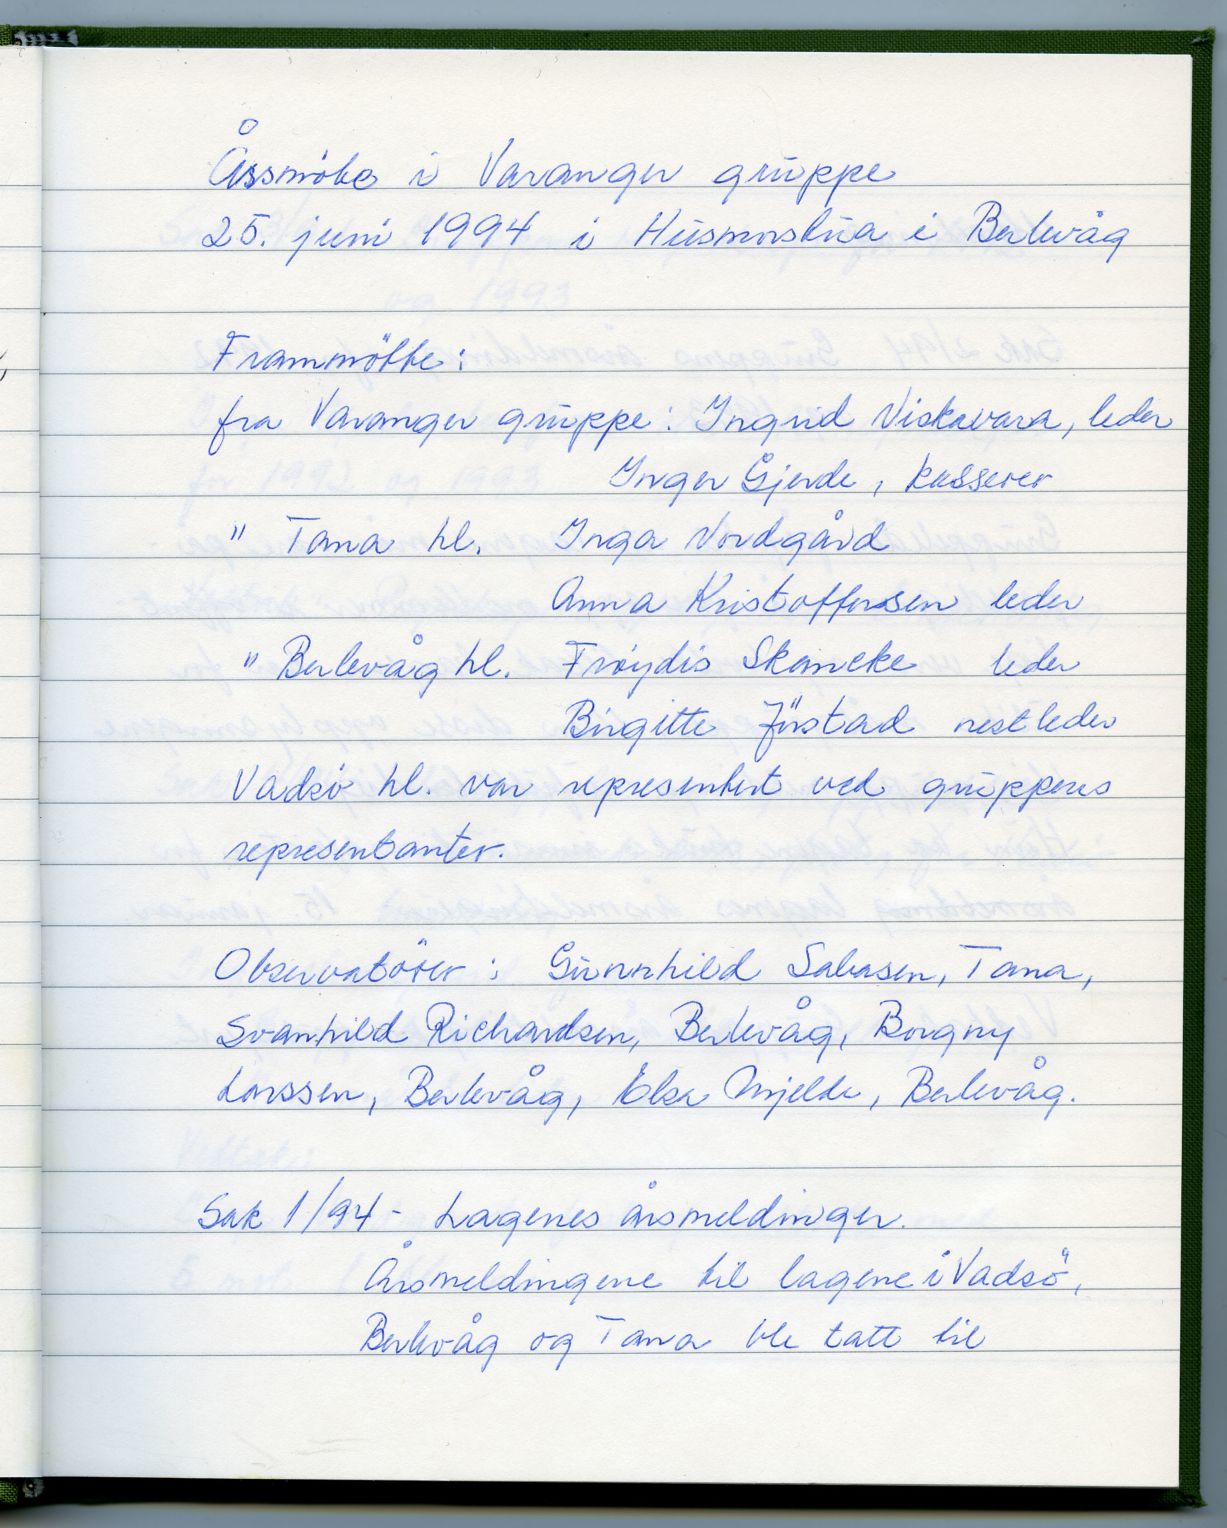 Årsmöte i Varanger gruppe
25. juni 1994 i Husmorstua i Berlevåg
Frammötte:
fra Varanger gruppe: Ingrid Viskavara, leder
Inger Gjerde, kasserer
" Tana hl. Inga Nordgård
Anna Kristoffersen leder
" Berlevåg hl. Frøydis Skancke leder
Birgitte Jörstad nestleder
Vadsø hl. var representert ved gruppens
representanter.
Observatörer: Gunnhild Salasen, Tana,
Svanhild Richardsen, Berlevåg, Borgny
Larssen, Berlevåg, Elsa Mjelde, Berlevåg.
Sak 1/94 - Lagenes årsmeldinger.
Årsmeldingene til lagene i Vadsö,
Berlevåg og Tana ble tatt til